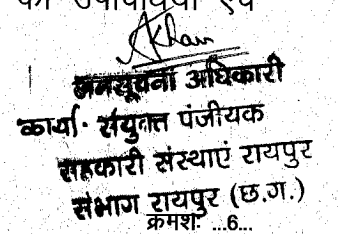 की उपविधियों एवं
AKhan
जनसूचना अधिकारी
कार्या. संयुक्त पंजीयक
सहकारी संस्थाएं रायपुर
संभाग रायपुर (छ.ग.)
क्रमशः ...6...